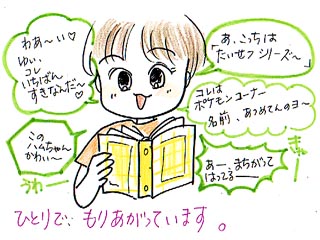 わあ〜い♡
ゆい、
コレ
いちばん
すきなんだ〜♡
あ、こっちは
「たいせつシリーズ〜」
コレは
ポケモンコーナー
名前、あつめてんのヨ〜
この
ハムちゃん
かわい〜
うわー
きゃー
あー、まちがって
はってる——
ひとりで‥もりあがっています。